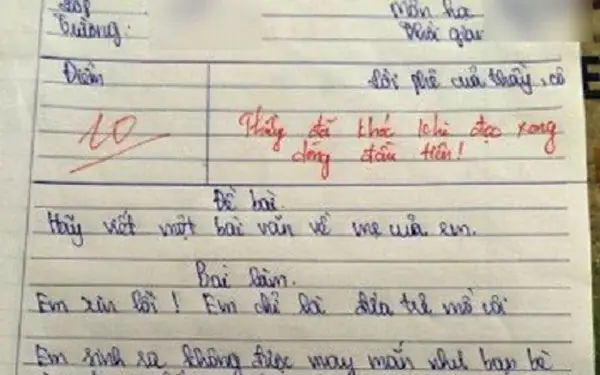 Lớp Môn học
Trường: Thời gian
Điểm Lời phê của thầy, cô
10 Thầy đã khóc khi đọc xong
dòng đầu tiên!
Đề bài.
Hãy viết một bài văn về mẹ của em.
Bài làm.
Em xin lỗi! Em chỉ là đứa trẻ mồ côi
Em sinh ra không được may mắn như bạn bè